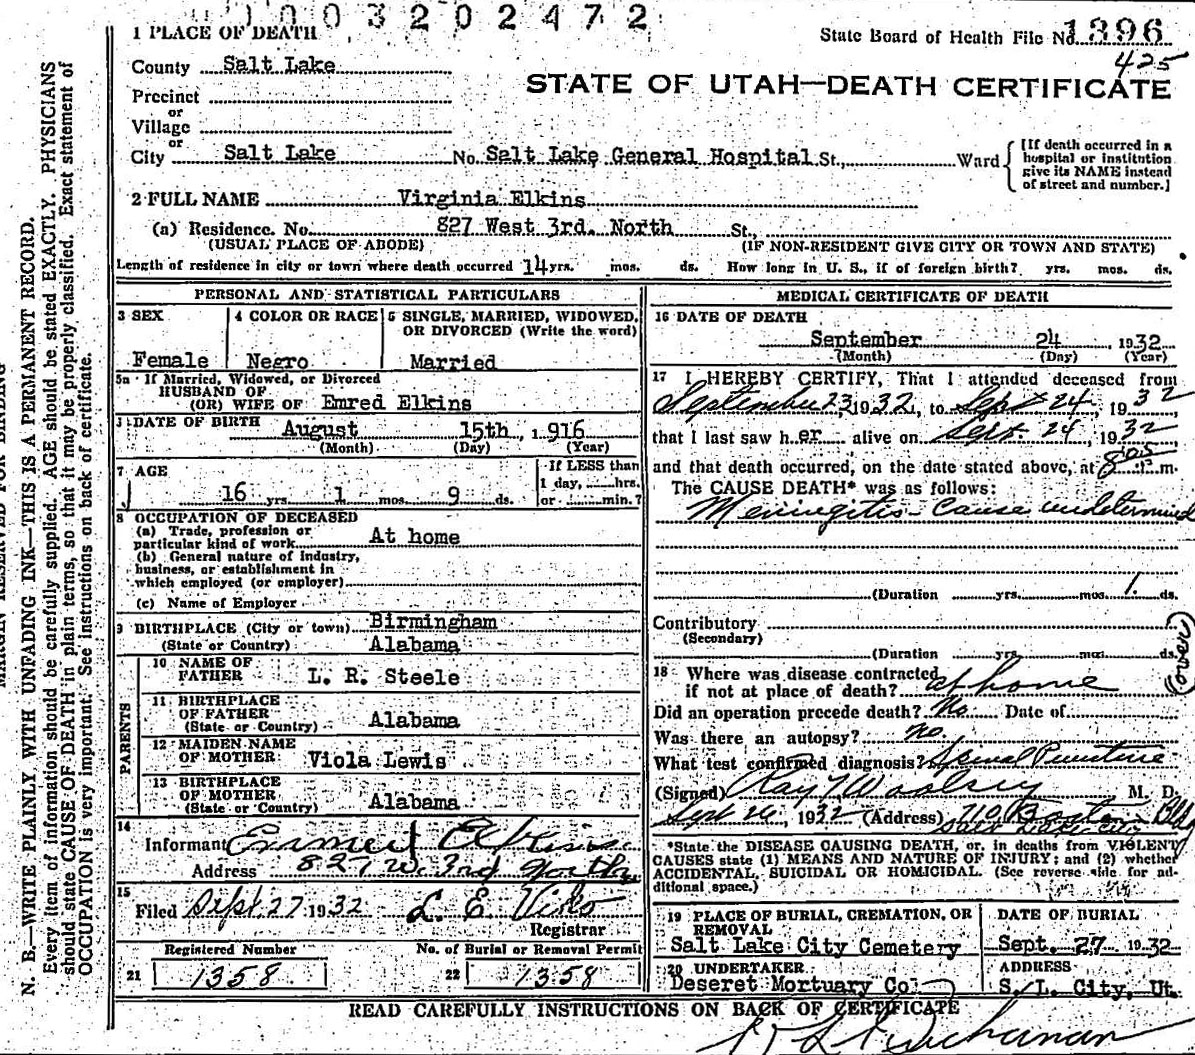 0003202472
1 PLACE OF DEATH
State Board of Health File No. 1396
425
County Salt Lake
STATE OF UTAH—DEATH CERTIFICATE
Precinct
or
Village
or
City Salt Lake No. Salt Lake General Hospital St., Ward
[If death occurred in a
hospital or institution
give its NAME instead
of street and number.]
2 FULL NAME Virginia Elkins
(a) Residence. No. 827 West 3rd. North St.,
(USUAL PLACE OF ABODE) (IF NON-RESIDENT GIVE CITY OR TOWN AND STATE)
Length of residence in city or town where death occurred 14 yrs. mos. ds. How long in U. S., if of foreign birth? yrs. mos. ds.
PERSONAL AND STATISTICAL PARTICULARS
3 SEX
Female
4 COLOR OR RACE
Negro
5 SINGLE, MARRIED, WIDOWED,
OR DIVORCED (Write the word)
Married
5a If Married, Widowed, or Divorced
HUSBAND OF
(OR) WIFE OF Emred Elkins
DATE OF BIRTH August 15th, 1916
(Month) (Day) (Year)
7 AGE
16 yrs. 1 mos. 9 ds.
If LESS than
1 day, hrs.
or min.?
8 OCCUPATION OF DECEASED
(a) Trade, profession or
particular kind of work At home
(b) General nature of industry,
business, or establishment in
which employed (or employer)
(c) Name of Employer
9 BIRTHPLACE (City or town) Birmingham
(State or Country) Alabama
PARENTS
10 NAME OF
FATHER L. R. Steele
11 BIRTHPLACE
OF FATHER
(State or Country) Alabama
12 MAIDEN NAME
OF MOTHER Viola Lewis
13 BIRTHPLACE
OF MOTHER
(State or Country) Alabama
14
Informant Elkins
Address 827 W. 3rd North
15
Filed Sept. 27 1932 L. E. Viko
Registrar
Registered Number No. of Burial or Removal Permit
21 1358 22 1358
MEDICAL CERTIFICATE OF DEATH
16 DATE OF DEATH
September 24, 1932
(Month) (Day) (Year)
17 I HEREBY CERTIFY, That I attended deceased from
September 23 1932, to Sept 24, 1932
that I last saw her alive on Sept. 24 1932
and that death occurred, on the date stated above, at 805 m.
The CAUSE DEATH* was as follows:
Meningitis - Cause undetermined
(Duration yrs. mos. 1. ds.
Contributory
(Secondary)
(Duration yrs. mos. ds.
(over)
18 Where was disease contracted
if not at place of death? at home
Did an operation precede death? No. Date of
Was there an autopsy? no.
What test confirmed diagnosis? Spinal Puncture
(Signed) Ray T Woolsey M. D.
Sept 26, 1932 (Address) 710 Boston Bldg
Salt Lake City
*State the DISEASE CAUSING DEATH, or, in deaths from VIOLENT
CAUSES state (1) MEANS AND NATURE OF INJURY; and (2) whether
ACCIDENTAL, SUICIDAL OR HOMICIDAL. (See reverse side for ad-
ditional space.)
19 PLACE OF BURIAL, CREMATION, OR
REMOVAL
Salt Lake City Cemetery
DATE OF BURIAL
Sept. 27 1932
20 UNDERTAKER
Deseret Mortuary Co
ADDRESS
S. L. City, Ut.
READ CAREFULLY INSTRUCTIONS ON BACK OF CERTIFICATE
Buchanan
MARGIN RESERVED FOR BINDING
N. B.—WRITE PLAINLY WITH UNFADING INK—THIS IS A PERMANENT RECORD.
Every item of information should be carefully supplied. AGE should be stated EXACTLY. PHYSICIANS
should state CAUSE OF DEATH in plain terms, so that it may be properly classified. Exact statement of
OCCUPATION is very important. See instructions on back of certificate.